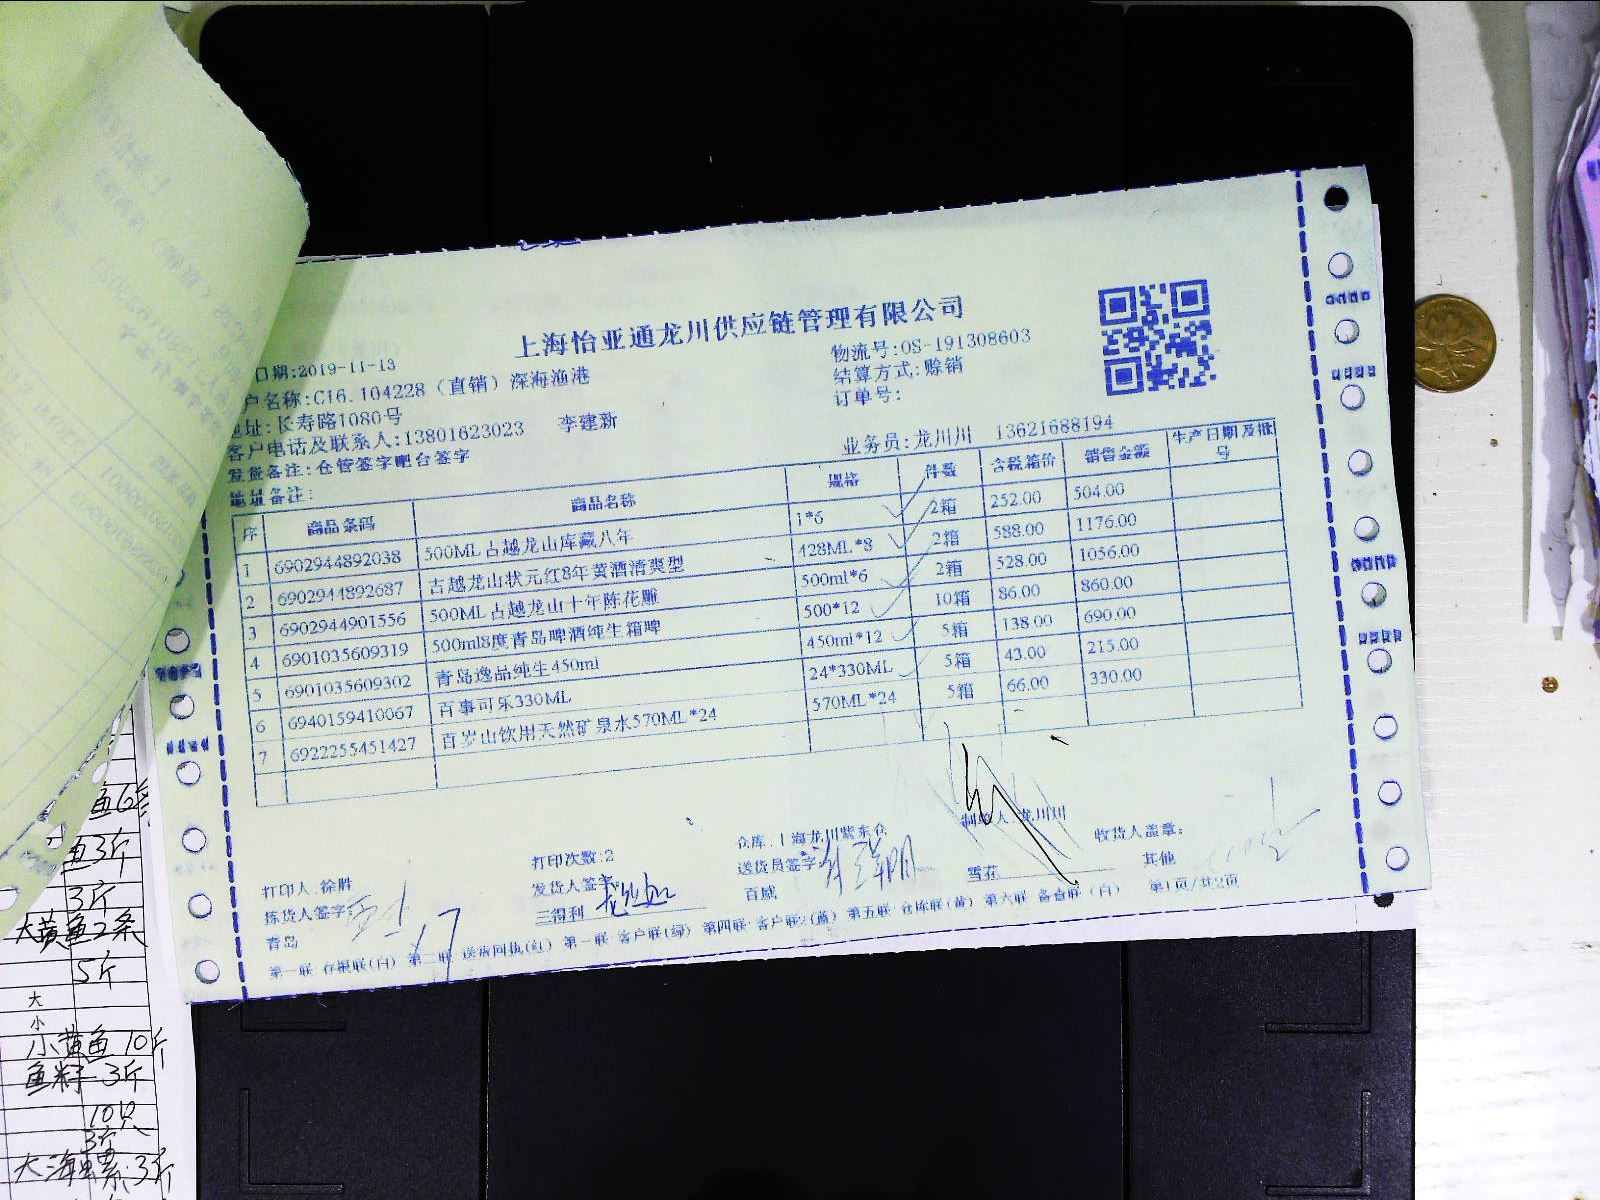 上海怡亚通龙川供应链管理有限公司
日期:2019-11-13
物流号:OS-191308603
户名称:C16.104228（直销）深海渔港
结算方式:赊销
地址:长寿路1080号
订单号:
客户电话及联系人:13801623023 李建新
业务员:龙川川 13621688194
发货备注:仓管签字吧台签字
地址备注:
序 商品条码 商品名称 规格 件数 含税箱价 销售金额 生产日期及批号
1 6902944892038 500ML古越龙山库藏八年 1*6 2箱 252.00 504.00
2 6902944892687 古越龙山状元红8年黄酒清爽型 428ML*8 2箱 588.00 1176.00
3 6902944901556 500ML古越龙山十年陈花雕 500ml*6 2箱 528.00 1056.00
4 6901035609319 500ml8度青岛啤酒纯生箱啤 500*12 10箱 86.00 860.00
5 6901035609302 青岛逸品纯生450ml 450ml*12 5箱 138.00 690.00
6 6940159410067 百事可乐330ML 24*330ML 5箱 43.00 215.00
7 6922255451427 百岁山饮用天然矿泉水570ML*24 570ML*24 5箱 66.00 330.00
打印人:徐胜 打印次数:2 仓库:上海龙川紫东仓 制单人:龙川川 收货人盖章:
拣货人签字: 发货人签字: 送货员签字:
青岛 三得利 百威 雪花 其他
第一联 存根联(白) 第二联 送货回执(红) 第一联 客户联(绿) 第四联 客户联2(蓝) 第五联 仓库联(黄) 第六联 备查联(白) 第1页/共2页
鱼6条
鱼3斤
3斤
大黄鱼2条
5斤
大
小
小黄鱼 10斤
鱼籽 3斤
10只
3斤
大海螺 3斤